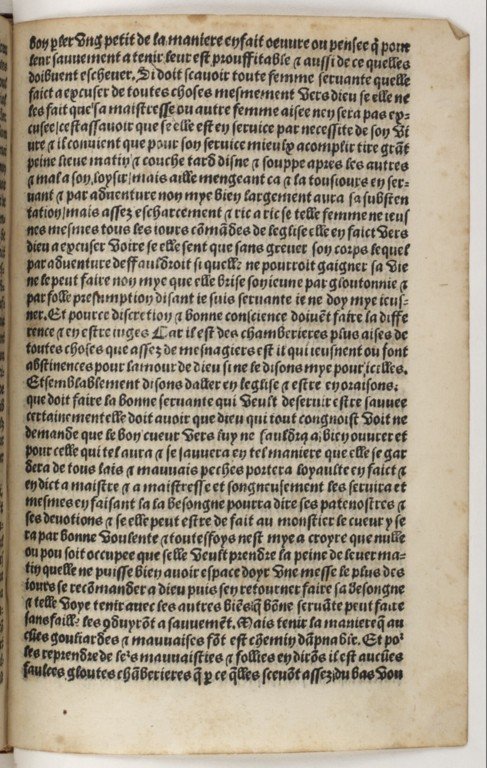 boy p̲ler vng petit de la maniere en fait oeuure ou pensee q̄ pour
leur sauuement a tenir leur est prouffitable ⁊ aussi de ce quelles
doibuent escheuer. Si doit scauoir toute femme seruante quelle
faict a excuser de toutes choses mesmement vers dieu se elle ne
les fait que sa maistresse ou autre femme aisee nen sera pas ex-
cusee/cestassauoir que se elle est en seruice par necessite de son vi
ure ⁊ il conuient que pour son seruice mieulx acomplir tire grāt
peine lieue matin ⁊ couche tard disne ⁊ souppe apres les autres
⁊ mal a son loysir/mais aille mengeant ca ⁊ la tousiours en ser-
uant ⁊ par aduenture non mye bien largement aura sa substen
tation/mais assez escharcement ⁊ ric a ric se telle femme ne ieus
nes mesmes tous les iours cōmādes de leglise elle en faict vers
dieu a excuser Voire se elle sent que sans greuer son corps lequel
par aduenture deffauldroit si quelle ne pourroit gaigner sa vie
ne le peut faire non mye que elle brise son ieune par gloutonnie ⁊
par folle presumption disant ie suis seruante ie ne doy mye ieus-
ner. Et pource discretion ⁊ bonne conscience doiuēt faire la diffe
rence ⁊ en estre iuges Car il est des chamberieres plus aises de
toutes choses que assez de mesnagiers est il qui ieusnent ou font
abstinences pour lamour de dieu si ne le disons mye pour icelles.
Et semblablement disons daller en leglise ⁊ estre en oraisons:
que doit faire la bonne seruante qui veult deseruir estre sauuee
certainement elle doit auoir que dieu qui tout congnoist voit ne
demande que le bon cueur vers luy ne fauldra a bien ouurer et
pour celle qui tel aura ⁊ se sauuera en tel maniere que elle se gar
dera de tous lais ⁊ mauuais peches portera loyaulte en faict ⁊
en dict a maistre ⁊ a maistresse et songneusement les seruira et
mesmes en faisant la la besongne pourra dire ses patenostres ⁊
ses deuotions ⁊ se elle peut estre de fait au monstier le cueur y se
ra par bonne voulente ⁊ toutesfoys nest mye a croyre que nulle
ou pou soit occupee que selle veult prendre la peine de leuer ma-
tin quelle ne puisse bien auoir espace doyr vne messe le plus des
iours se recōmander a dieu puis sen retourner faire sa besongne
⁊ telle voye tenir auec les autres biēs q̄ bōne seruāte peut faire
sans faille les 9duyrōt a sauuemēt. Mais tenir la maniere q̄ au
cūes gouliardes ⁊ mauuaises fōt est chemin dāpnable. Et por
les reprendre de lers mauuaisties ⁊ follies en dirōs il est aucūes
faulces gloutes chāberieres q̄ p̲ ce q̄lles sceuēt assez du bas vou